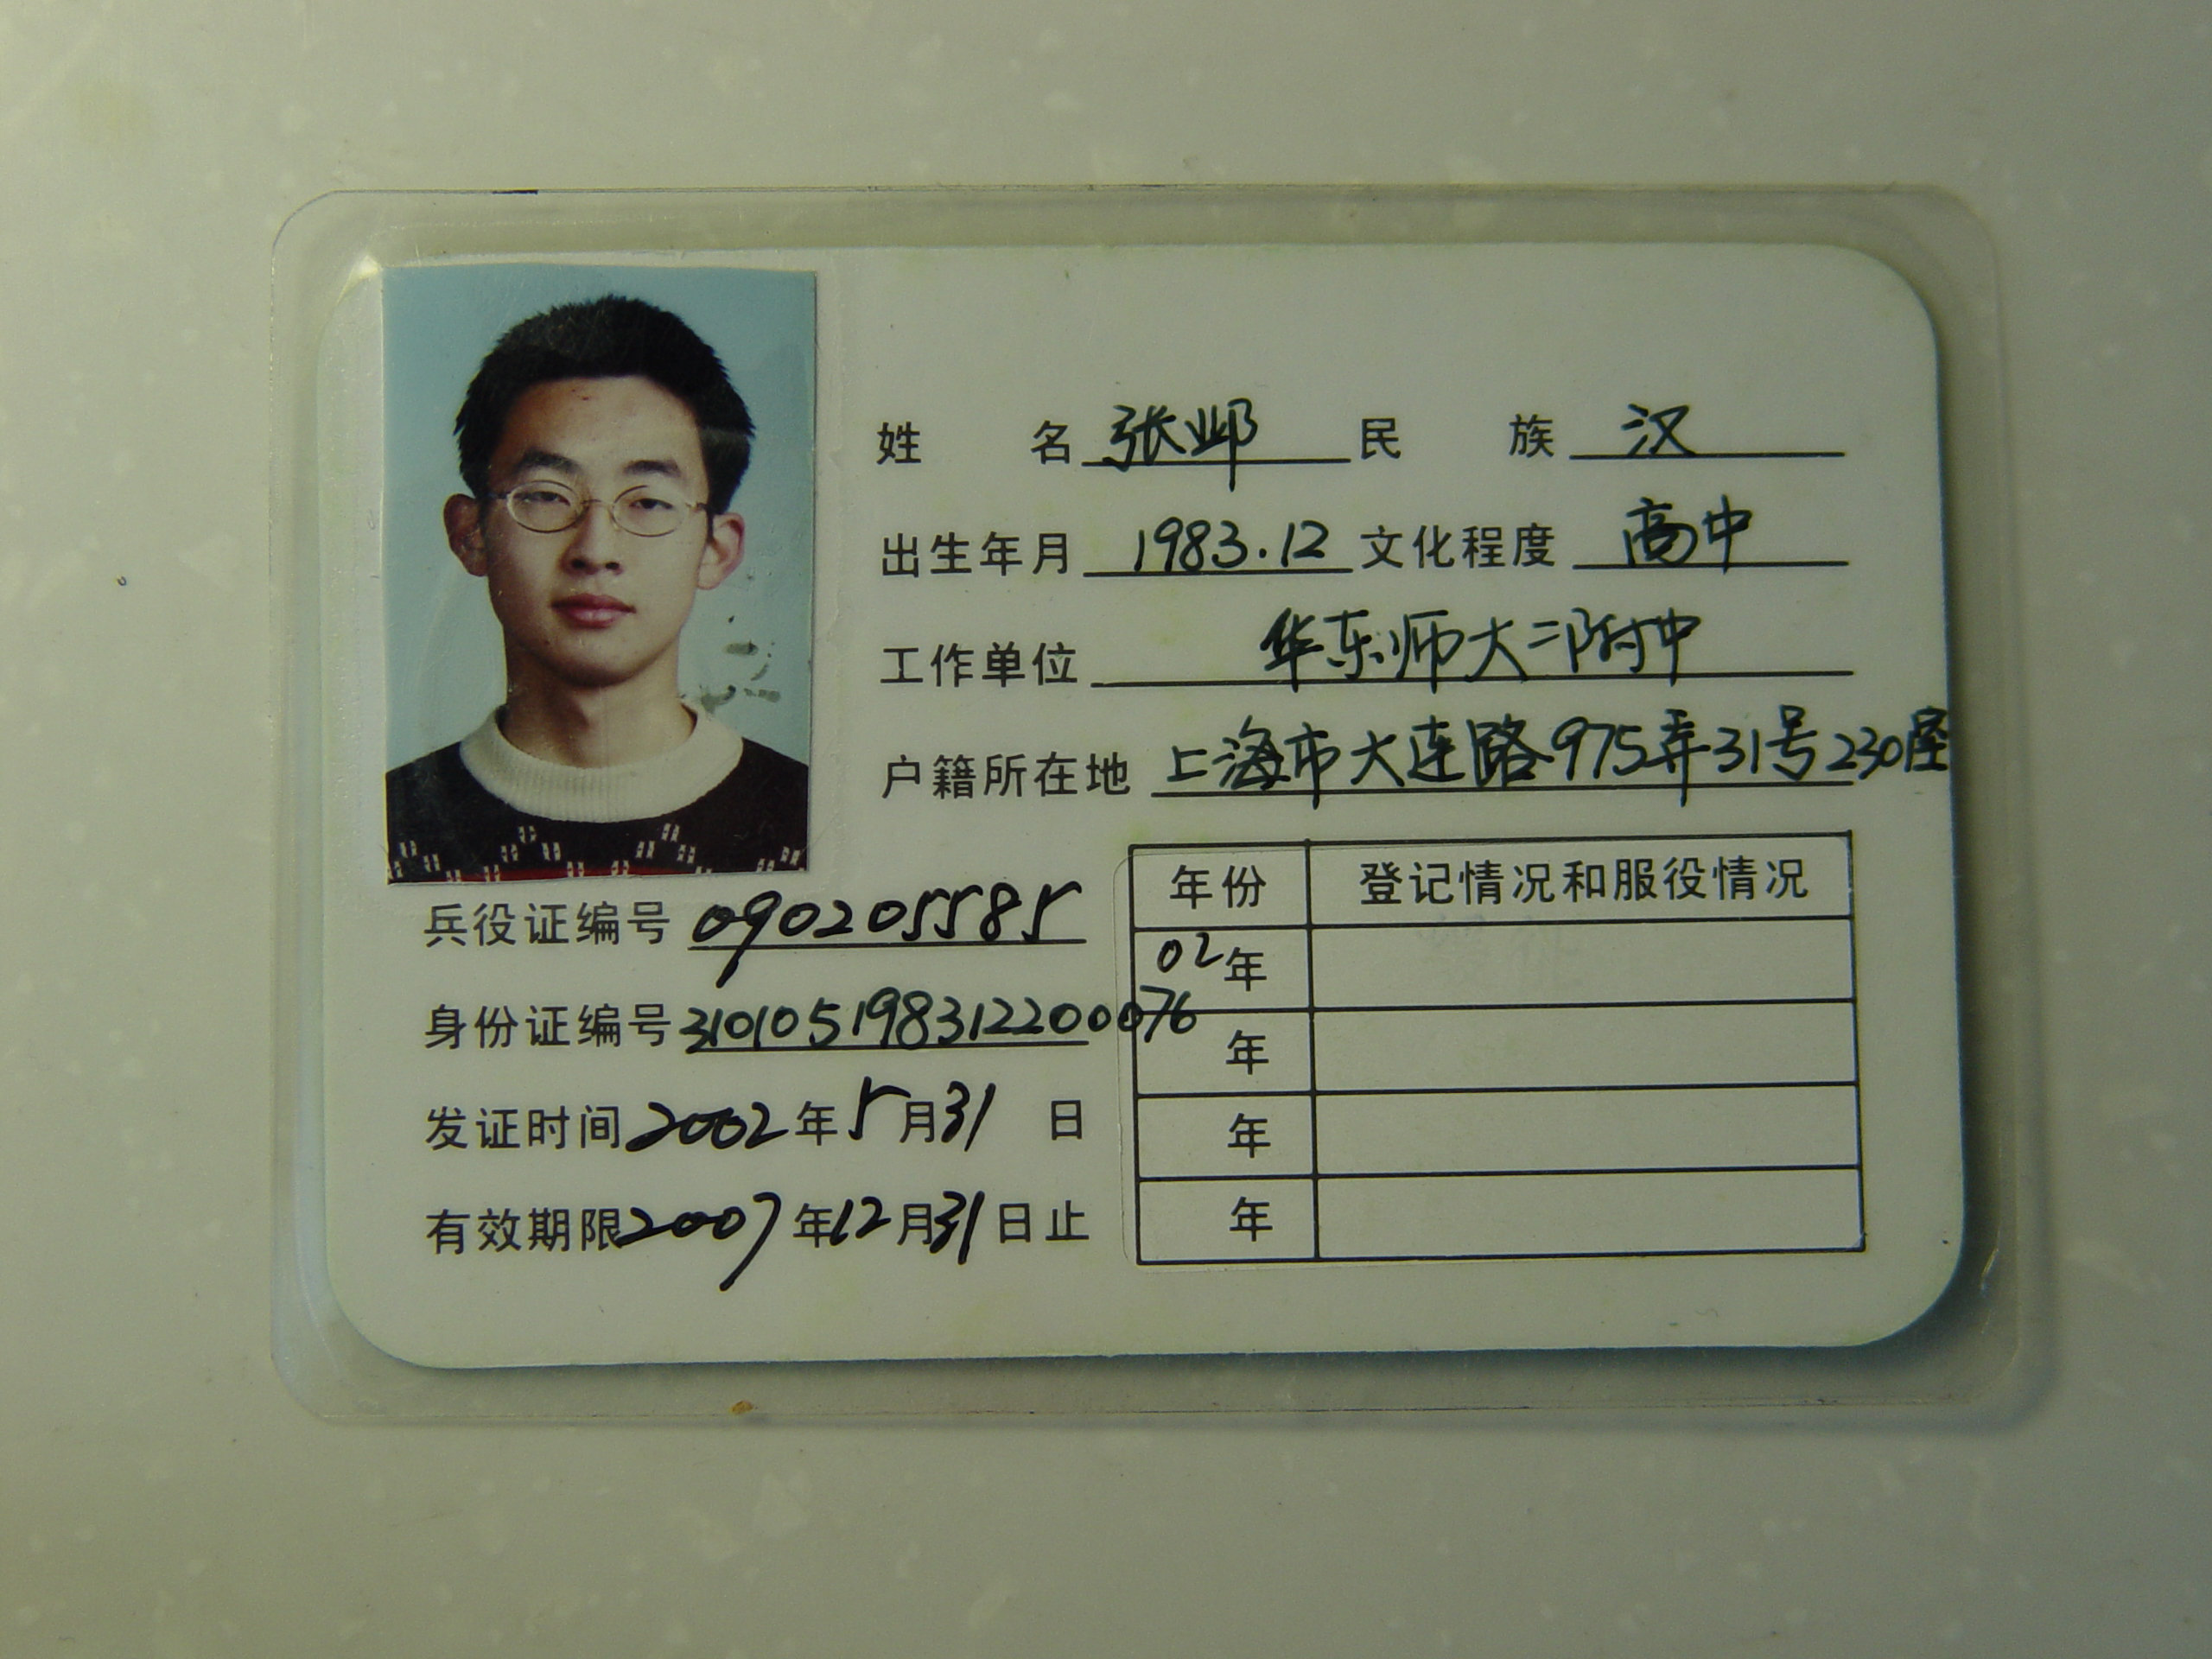 姓 名 张邺 民 族 汉
出生年月 1983.12 文化程度 高中
工作单位 华东师大二附中
户籍所在地 上海市大连路975弄31号230室
兵役证编号 090205585
身份证编号 310105198312200076
发证时间 2002 年 5 月 31 日
有效期限 2007 年 12 月 31 日止
年份 登记情况和服役情况
02 年
年
年
年